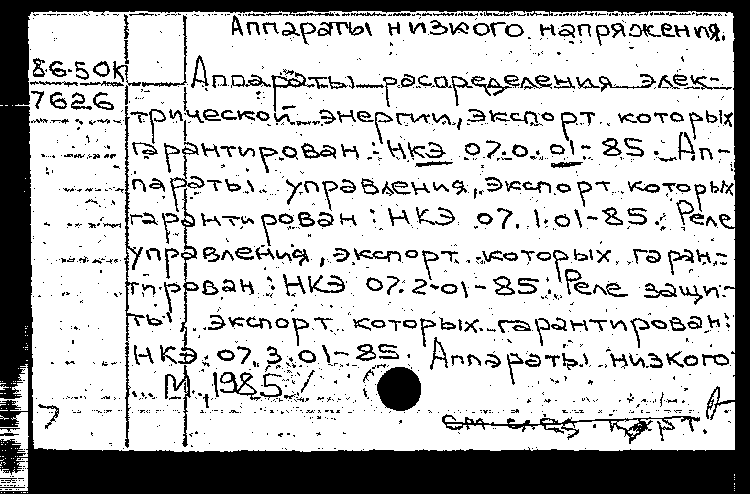 Аппараты низкого напряжения.
86-50К
7626
Аппараты распределения элек-
трической энергии, экспорт которых
гарантирован: НКЭ 07.0.01-85. Ап-
параты управления, экспорт которых
гарантирован: НКЭ 07.1.01-85. Реле
управления, экспорт которых гаран-
тирован: НКЭ 07.2-01-85. Реле защи-
ты, экспорт которых гарантирован:
НКЭ.07.3.01-85. Аппараты низкого
М., 1985
см. след. карт.